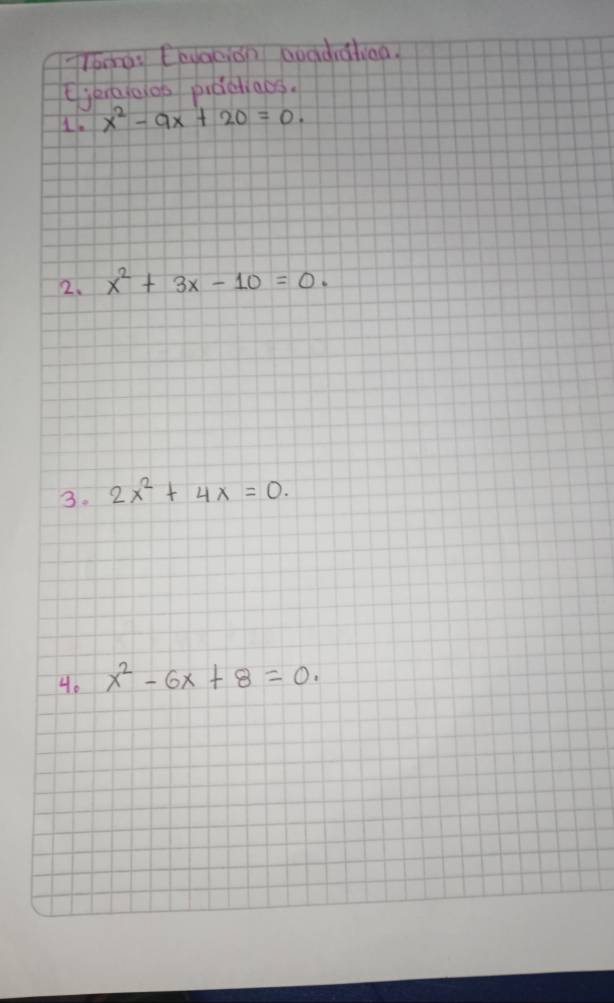 Tema: Ecuación cuadrática.
Ejercicios prácticos.
1. x² - 9x + 20 = 0.
2. x² + 3x - 10 = 0.
3. 2x² + 4x = 0.
4. x² - 6x + 8 = 0.